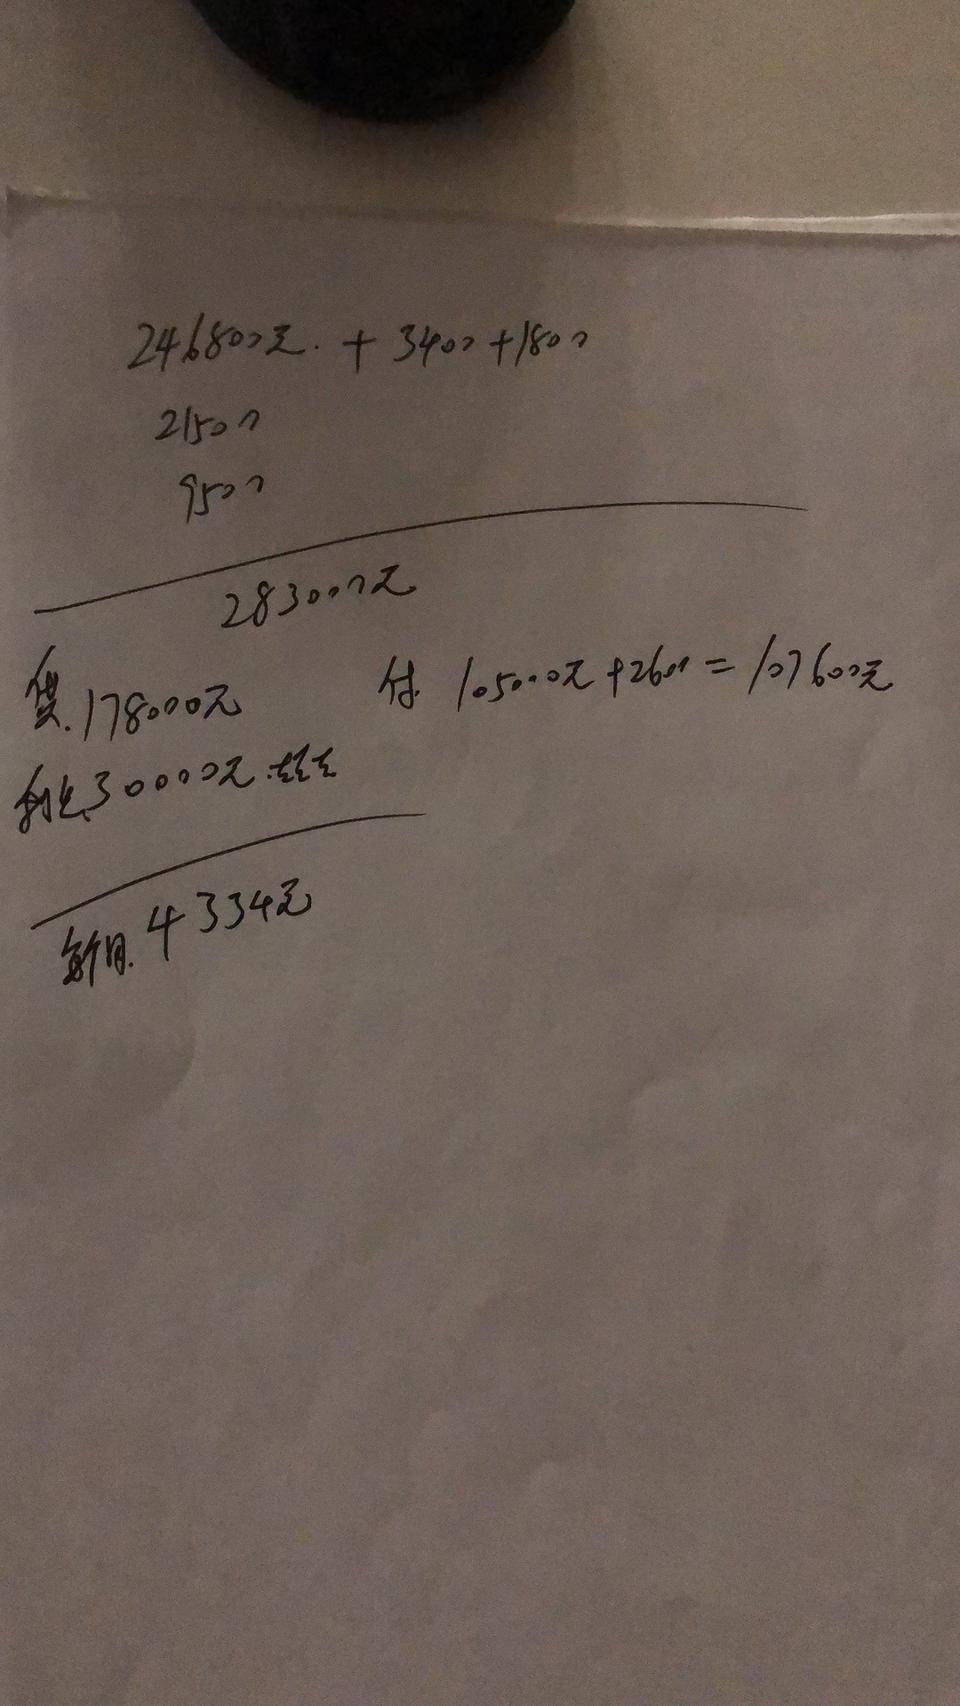 246800元. + 3400 + 1800
21500
9500
283000元
贷. 178000元 付. 105000元 + 2600 = 107600元
利息 30000元.
每个月. 4334元